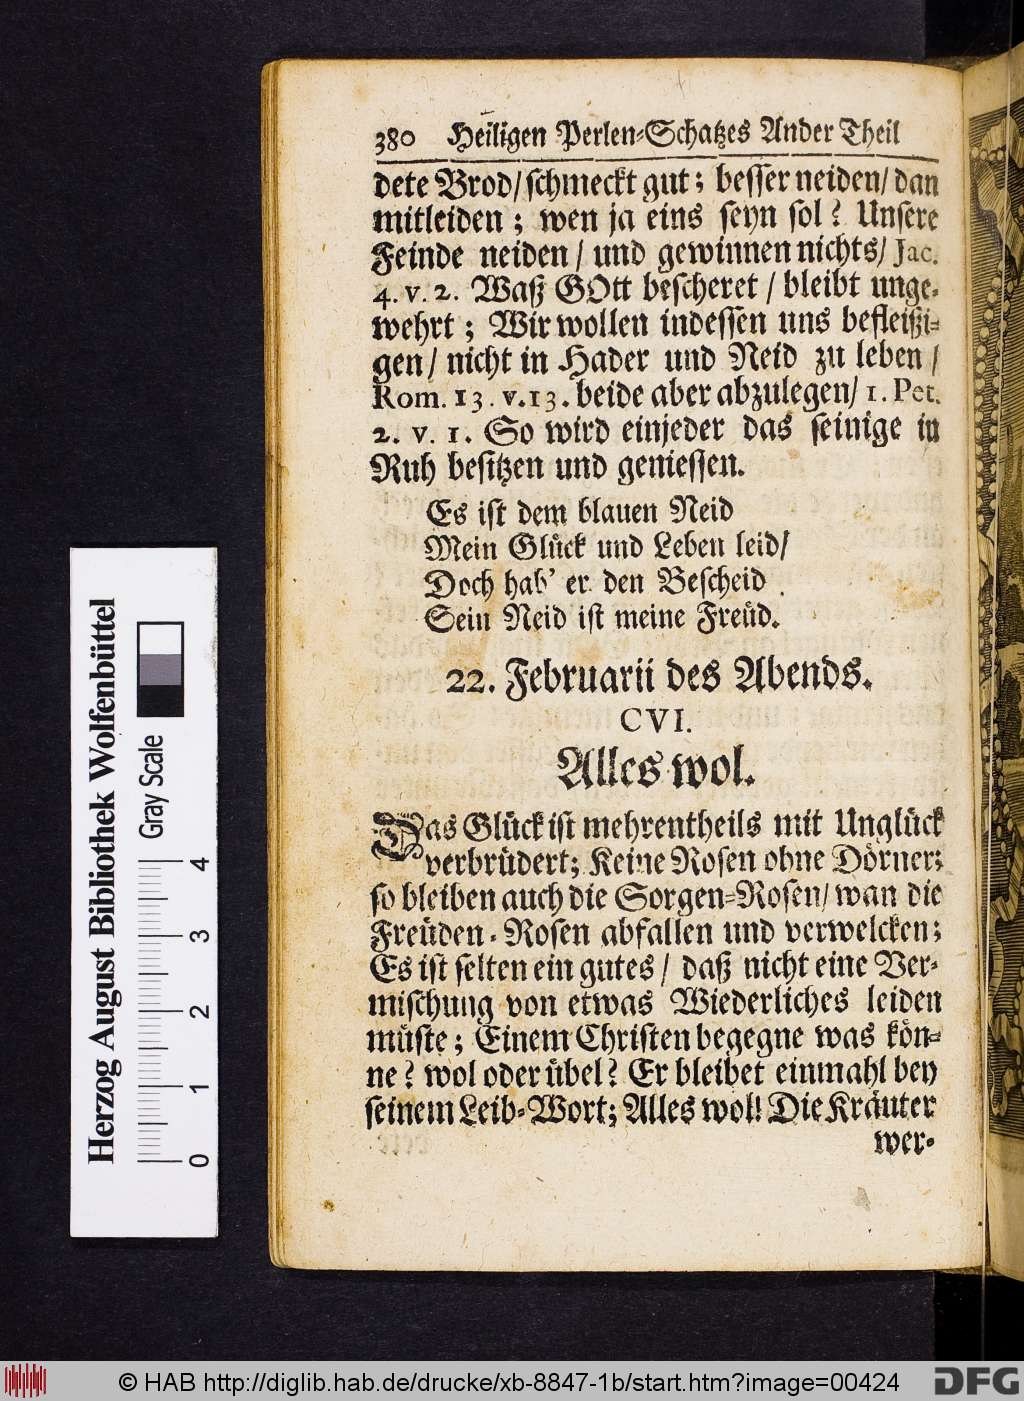 380 Heiligen Perlen-Schatzes Ander Theil
dete Brod/ schmeckt gut; besser neiden/ dan
mitleiden; wen ja eins seyn sol? Unsere
Feinde neiden/ und gewinnen nichts/ Jac.
4. v. 2. Waß GOtt bescheret/ bleibt unge-
wehrt; Wir wollen indessen uns befleißi-
gen/ nicht in Hader und Neid zu leben/
Rom. 13. v. 13. beide aber abzulegen/ 1. Pet.
2. v. 1. So wird einjeder das seinige in
Ruh besitzen und geniessen.
Es ist dem blauen Neid
Mein Glück und Leben leid/
Doch hab' er den Bescheid
Sein Neid ist meine Freüd.
22. Februarii des Abends.
CVI.
Alles wol.
Das Glück ist mehrentheils mit Unglück
verbrüdert; Keine Rosen ohne Dörner;
so bleiben auch die Sorgen-Rosen/ wan die
Freüden-Rosen abfallen und verwelcken;
Es ist selten ein gutes/ daß nicht eine Ver-
mischung von etwas Wiederliches leiden
müste; Einem Christen begegne was kön-
ne? wol oder übel? Er bleibet einmahl bey
seinem Leib-Wort; Alles wol! Die Kräuter
wer-
Herzog August Bibliothek Wolfenbüttel
Gray Scale
0 1 2 3 4
© HAB http://diglib.hab.de/drucke/xb-8847-1b/start.htm?image=00424
DFG